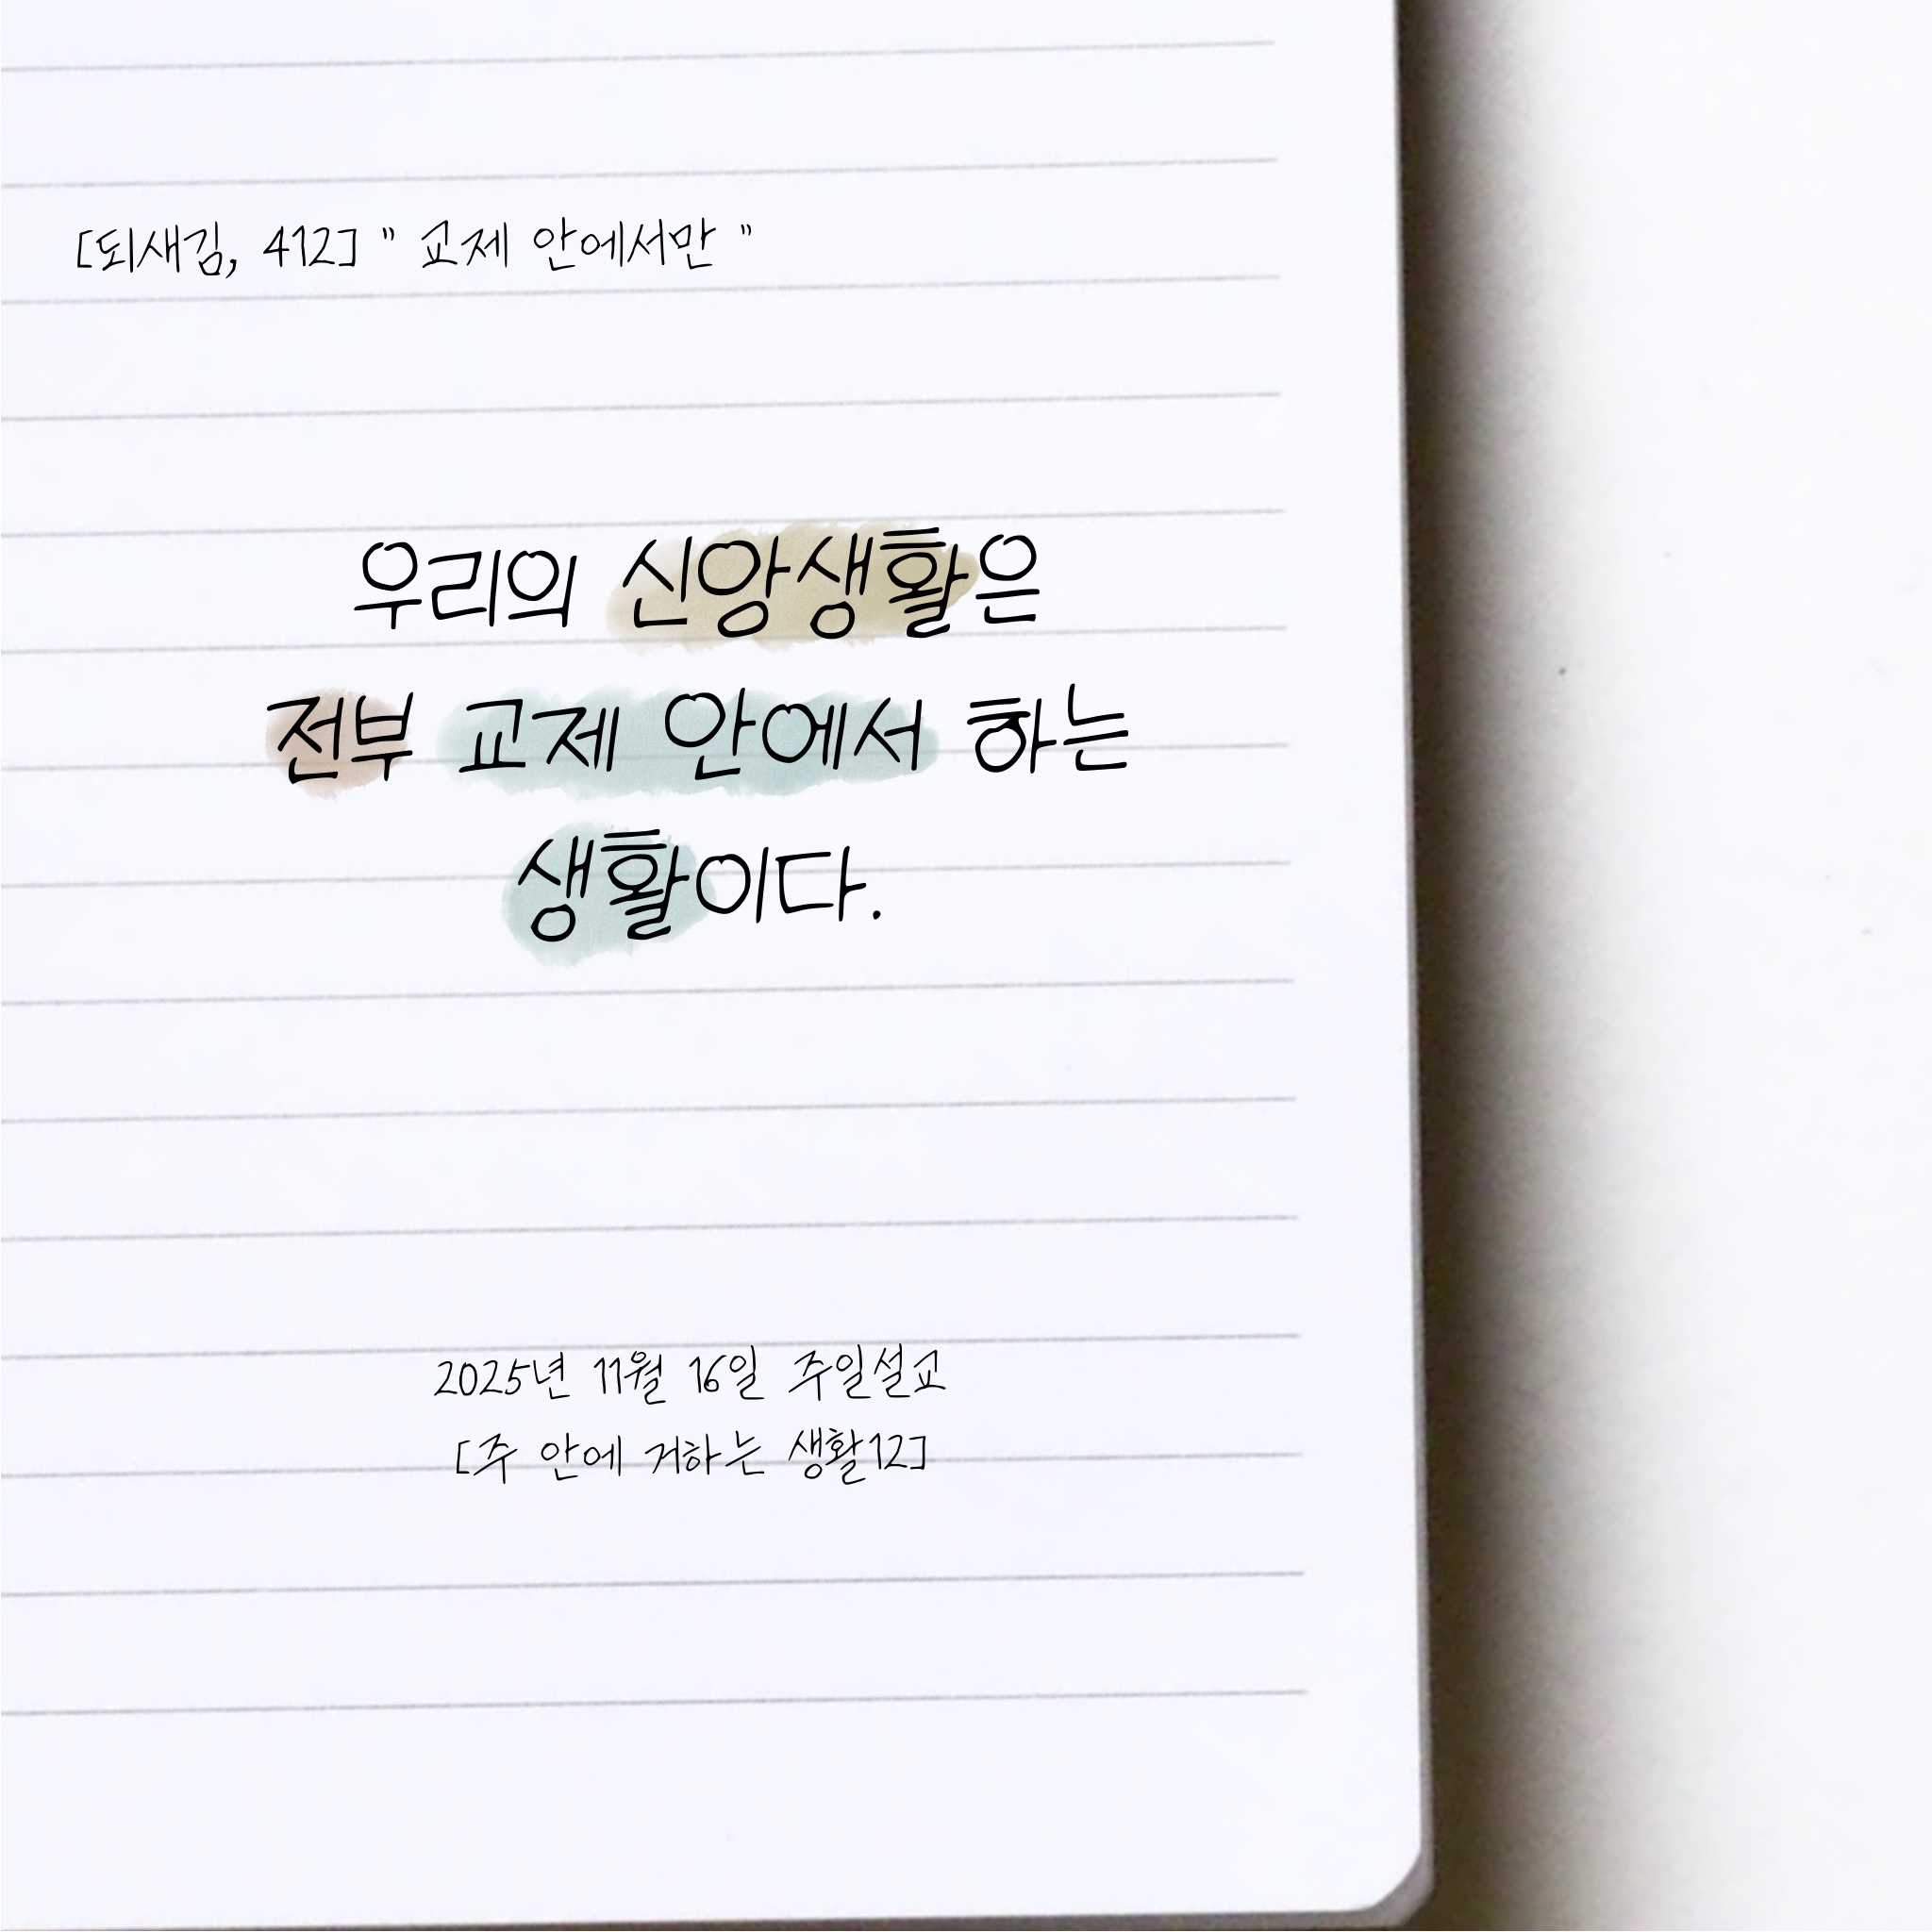 [되새김, 412] " 교제 안에서만 "
우리의 신앙생활은
전부 교제 안에서 하는
생활이다.
2025년 11월 16일 주일설교
[주 안에 거하는 생활12]